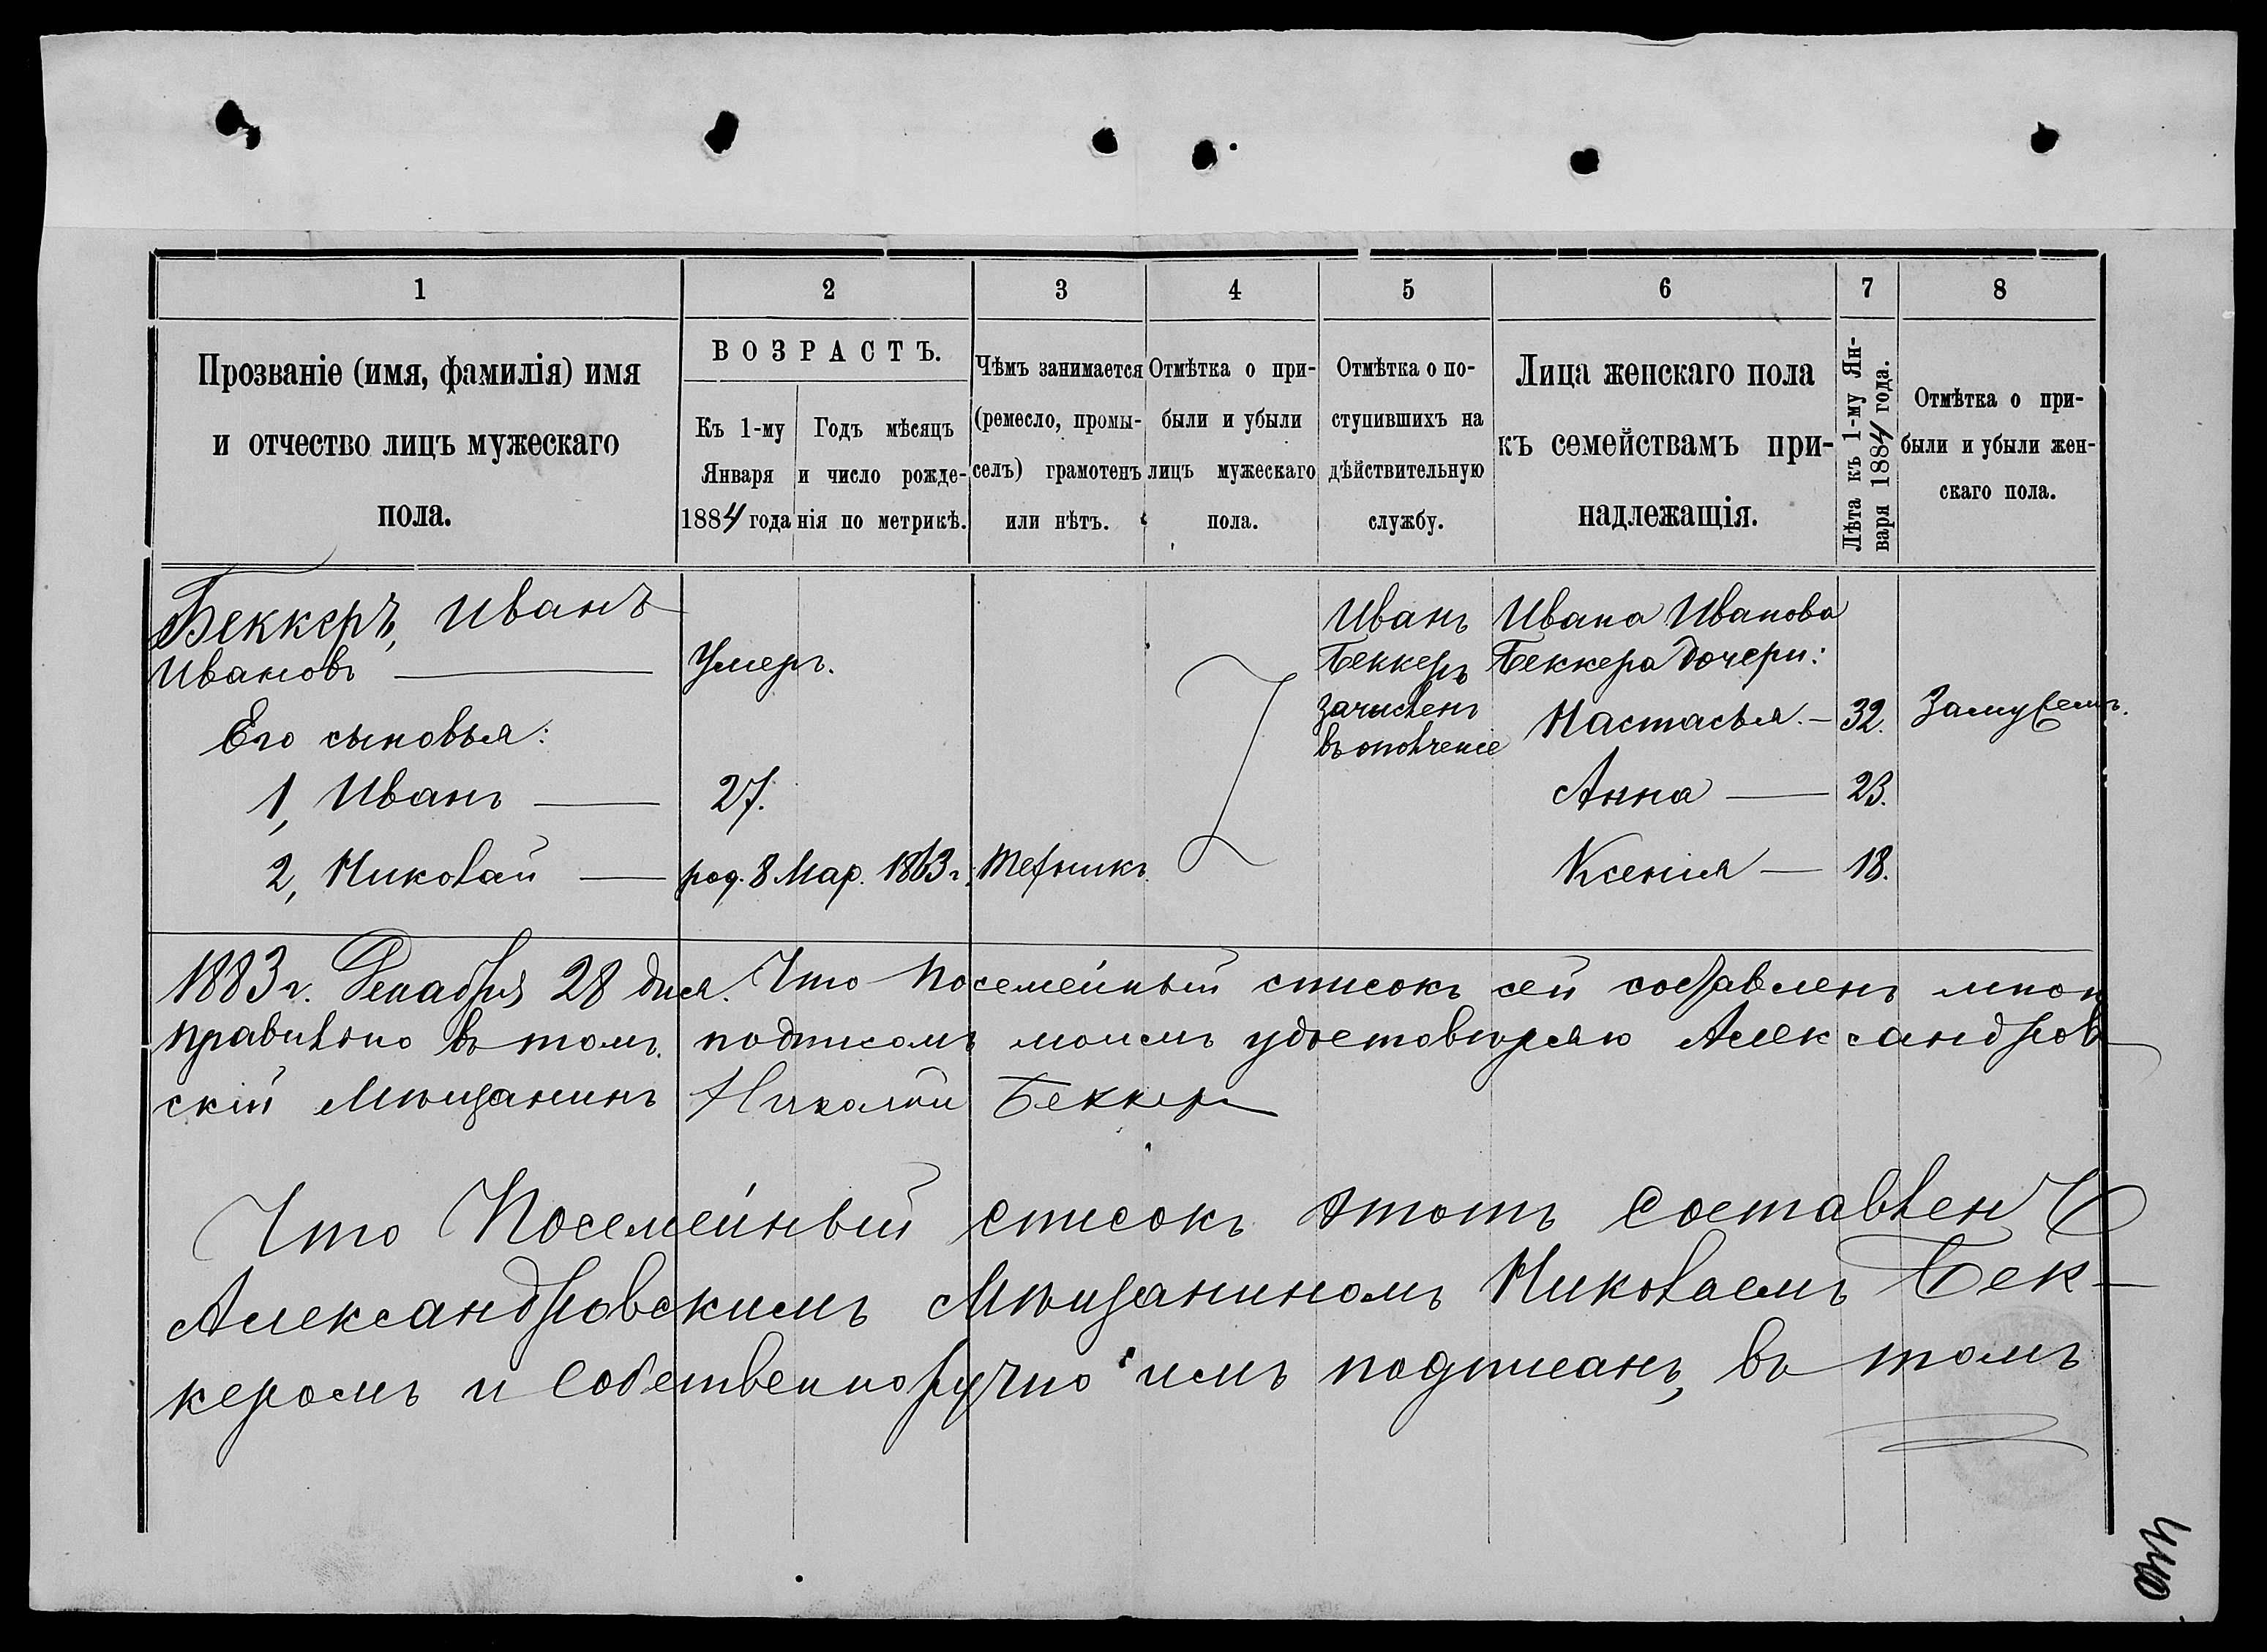 1
2
3
4
5
6
7
8
Прозваніе (имя, фамилія) имя
и отчество лицъ мужескаго
пола.
ВОЗРАСТЪ.
Къ 1-му
Января
1884 года
Годъ мѣсяцъ
и число рожде-
нія по метрикѣ.
Чѣмъ занимается
(ремесло, промы-
селъ) грамотенъ
или нѣтъ.
Отмѣтка о при-
были и убыли
лицъ мужескаго
пола.
Отмѣтка о по-
ступившихъ на
дѣйствительную
службу.
Лица женскаго пола
къ семействамъ при-
надлежащія.
Лѣта къ 1-му Ян-
варя 1884 года.
Отмѣтка о при-
были и убыли жен-
скаго пола.
Беккеръ, Иванъ
Ивановъ — Умеръ.
Его сыновья:
1, Иванъ — 27.
2, Николай — род. 8 Мар. 1863 г.
Иванъ
Беккеръ
зачисленъ
въ ополченіе
Ивана Иванова
Беккера дочери:
Настасья. — 32. Замужемъ.
Анна — 23.
Ксенія — 18.
1883 г. Декабря 28 дня. Что посемейный списокъ сей составленъ мною
правильно въ томъ подписомъ моимъ удостовѣряю Александров
скій Мѣщанинъ Николай Беккеръ
Что Посемейный списокъ этотъ составленъ
Александровскимъ Мѣщаниномъ Николаемъ Бек-
керомъ и собственноручно имъ подписанъ, въ томъ